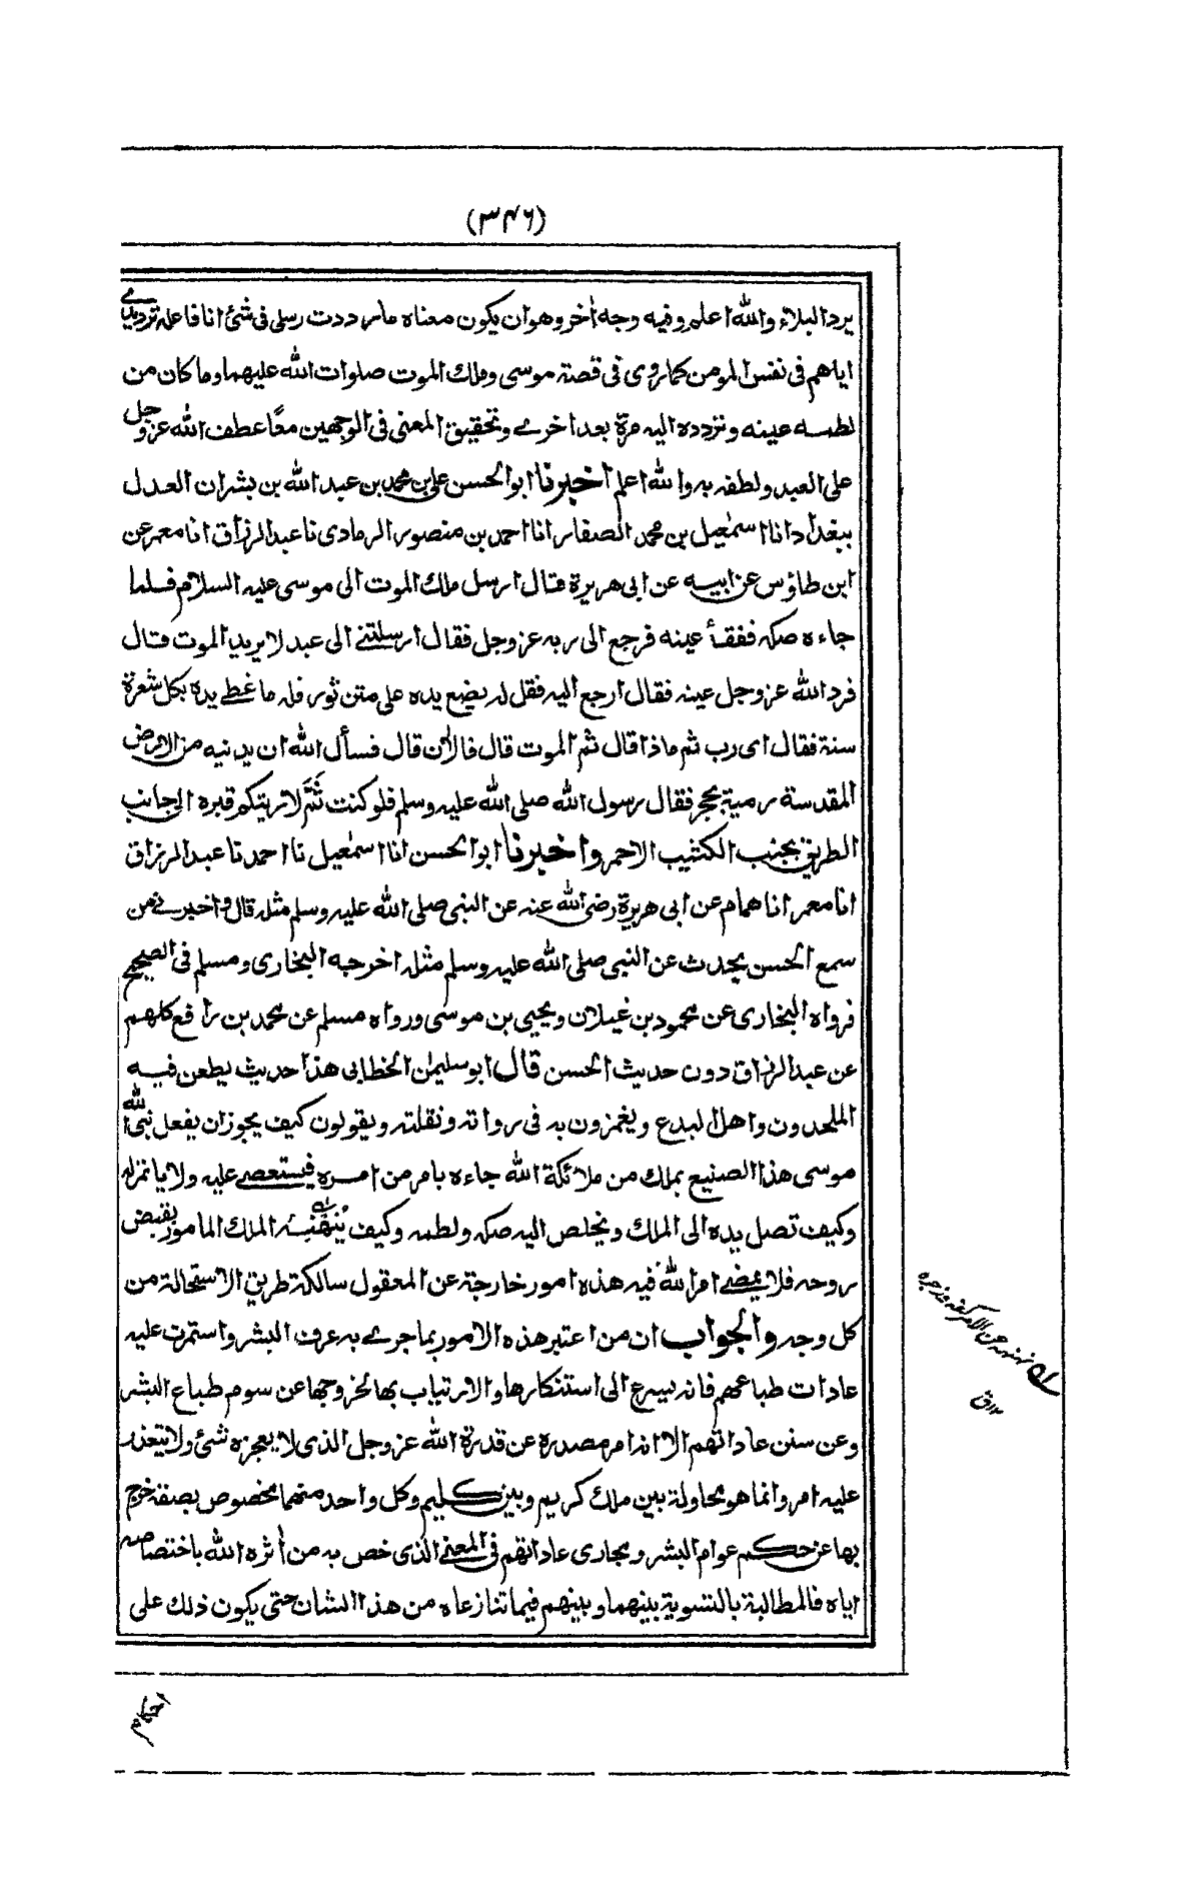 (۳۴۶)
يرد البلاء والله اعلم وفيه وجه أخر وهو ان يكون معناه ما رددت رسلي فى شئ انا فاعله ترديدي
اياهم فى نفس المومن كما روى فى قصة موسى وملك الموت صلوات الله عليهما وما كان من
لطمه عينه وتردده اليه مرة بعد اخرے وتحقيق المعنى فى الوجهين معًا عطف الله عز وجل
على العبد ولطفه به والله اعلم اخبرنا ابو الحسن على بن محمد بن عبد الله بن بشران العدل
ببغداد انا اسمٰعيل بن محمد الصفار انا احمد بن منصور الرمادى نا عبد الرزاق انا معمر عن
ابن طاؤس عن ابيه عن ابى هريرة قال ارسل ملك الموت الى موسى عليه السلام فلما
جاءه صكه ففقأ عينه فرجع الى ربه عز وجل فقال ارسلتنے الى عبد لا يريد الموت قال
فرد الله عز وجل عينه فقال ارجع اليه فقل له يضع يده على متن ثور فله ما غطے يده بكل شعرة
سنة فقال اى رب ثم ماذا قال ثم الموت قال فالأن قال فسأل الله ان يدنيه من الارض
المقدسة رمية بحجر فقال رسول الله صلى الله عليه وسلم فلو كنت ثَمَّ لاريتكم قبره الى جانب
الطريق بجنب الكثيب الاحمر واخبرنا ابو الحسن انا اسمٰعيل نا احمد نا عبد الرزاق
انا معمر انا همام عن ابى هريرة رضى الله عنه عن النبى صلى الله عليه وسلم مثله قال واخبرنے من
سمع الحسن يحدث عن النبى صلى الله عليه وسلم مثله اخرجه البخارى ومسلم فى الصحيح
فرواه البخارى عن محمود بن غيلان ويحيى بن موسى ورواه مسلم عن محمد بن رافع كلهم
عن عبد الرزاق دون حديث الحسن قال ابو سليمٰن الخطابى هذا حديث يطعن فيه
الملحدون واهل البدع ويغمزون به فى رواته ونقلته ويقولون كيف يجوز ان يفعل نبى الله
موسى هذا الصنيع بملك من ملائكة الله جاءه بامر من امره فيستعصے عليه ولا ياتمر له
وكيف تصل يده الى الملك ويخلص اليه صكه ولطمه وكيف يُنهنهه الملك المامور بقبض
روحه فلا يمضے امر الله فيه هذه امور خارجة عن المعقول سالكة طريق الاستحالة من
كل وجه والجواب ان من اعتبر هذه الامور بما جرے به عرف البشر واستمرت عليه
عادات طباعهم فانه يسرع الى استنكارها والارتياب بها لخروجها عن سوم طباع البشر
وعن سنن عاداتهم الا انه امر مصدره عن قدرة الله عز وجل الذى لا يعجزه شئ ولا يتعذر
عليه امر وانما هو محاولة بين ملك كريم وبين كليم وكل واحد منهما مخصوص بصفة خرج
بها عن حكم عوام البشر ومجارى عاداتهم فى المعنے الذى خص به من أثره الله باختصاصه
اياه فالمطالبة بالتسوية بينهما وبينهم فيما تنازعاه من هذا الشان حتى يكون ذلك على
احكام